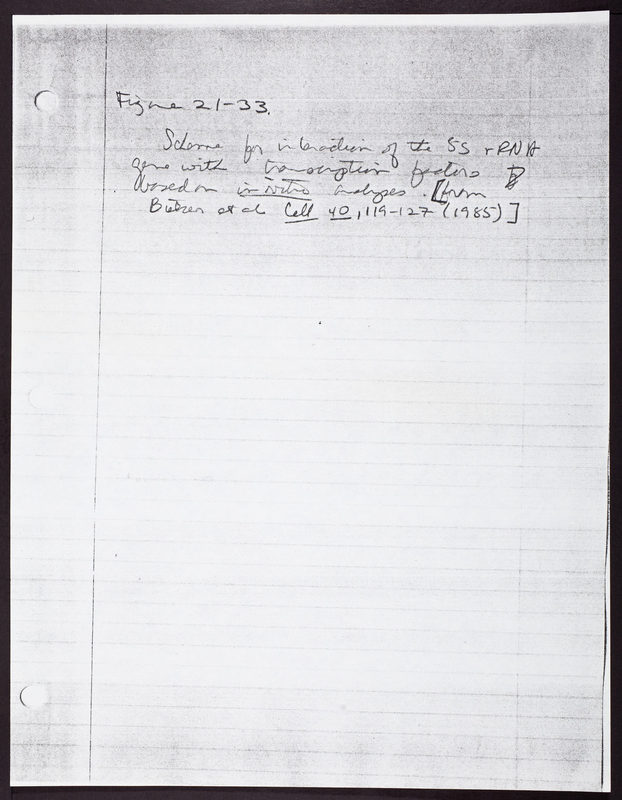 Figure 21-33.
Scheme for interaction of the 5S rRNA
gene with transcription factors
based on in vitro analyses. [from
et al Cell 40, 119-127 (1985)]